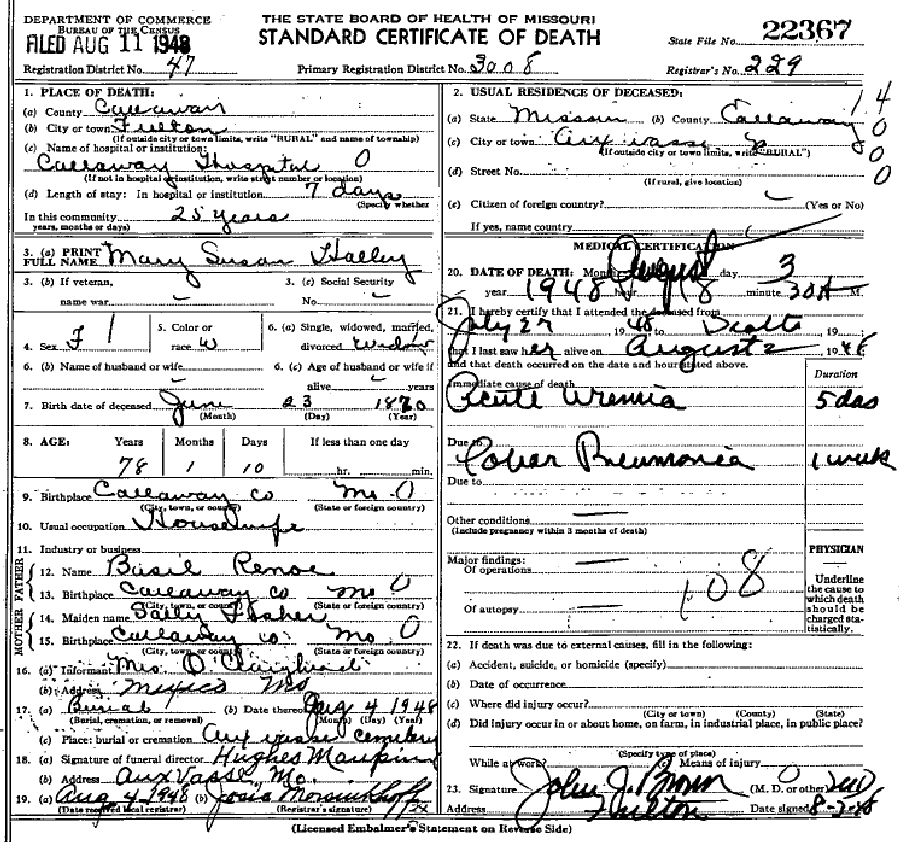 DEPARTMENT OF COMMERCE
BUREAU OF THE CENSUS
FILED AUG 11 1948
Registration District No. 47
THE STATE BOARD OF HEALTH OF MISSOURI
STANDARD CERTIFICATE OF DEATH
Primary Registration District No. 3008
State File No. 22367
Registrar's No. 229
1. PLACE OF DEATH:
(a) County Callaway
(b) City or town Fulton
(If outside city or town limits, write "RURAL" and name of township)
(c) Name of hospital or institution:
Callaway Hospital 0
(If not in hospital or institution, write street number or location)
(d) Length of stay: In hospital or institution 7 days
(Specify whether
In this community 25 years
years, months or days)
2. USUAL RESIDENCE OF DECEASED: 14
(a) State Missouri (b) County Callaway 0
(c) City or town Auxvasse
(If outside city or town limits, write "RURAL") 0
(d) Street No. 0
(If rural, give location)
(e) Citizen of foreign country? (Yes or No)
If yes, name country
3. (a) PRINT FULL NAME Mary Susan Halley
3. (b) If veteran, name war -
3. (c) Social Security No. -
4. Sex F 1
5. Color or race W
6. (a) Single, widowed, married, divorced widow
6. (b) Name of husband or wife -
6. (c) Age of husband or wife if alive - years
7. Birth date of deceased June 23 1870
(Month) (Day) (Year)
8. AGE: Years Months Days If less than one day
78 1 10 hr. min.
9. Birthplace Callaway Co Mo 0
(City, town, or county) (State or foreign country)
10. Usual occupation Housewife
11. Industry or business
FATHER
12. Name Basil Renoe
13. Birthplace Callaway Co Mo 0
(City, town, or county) (State or foreign country)
MOTHER
14. Maiden name Sally
15. Birthplace Callaway Co. Mo. 0
(City, town, or county) (State or foreign country)
16. (a) Informant Mrs. O. Craighead
(b) Address Mexico Mo
17. (a) Burial (b) Date thereof Aug 4 1948
(Burial, cremation, or removal) (Month) (Day) (Year)
(c) Place: burial or cremation Auxvasse cemetery
18. (a) Signature of funeral director Hughes Maupin
(b) Address Auxvasse Mo.
19. (a) Aug 4 1948 (b) Josie
(Date received local registrar) (Registrar's signature)
MEDICAL CERTIFICATION
20. DATE OF DEATH: Month August day 3
year 1948 hour 8 minute 30 A M.
21. I hereby certify that I attended the deceased from
July 27 1948 Death 19
that I last saw her alive on August 2 1948
and that death occurred on the date and hour stated above.
Duration
Immediate cause of death
Acute Uremia 5 das
Due to
Lobar Pneumonia 1 week
Due to
Other conditions
(Include pregnancy within 3 months of death)
Major findings:
Of operations
108
Of autopsy
PHYSICIAN
Underline the cause to which death should be charged statistically.
22. If death was due to external causes, fill in the following:
(a) Accident, suicide, or homicide (specify)
(b) Date of occurrence
(c) Where did injury occur?
(City or town) (County) (State)
(d) Did injury occur in or about home, on farm, in industrial place, in public place?
(Specify type of place)
While at work? (e) Means of injury
23. Signature John J. Brown (M. D. or other) MD
Address Fulton Date signed 8-3-48
(Licensed Embalmer's Statement on Reverse Side)